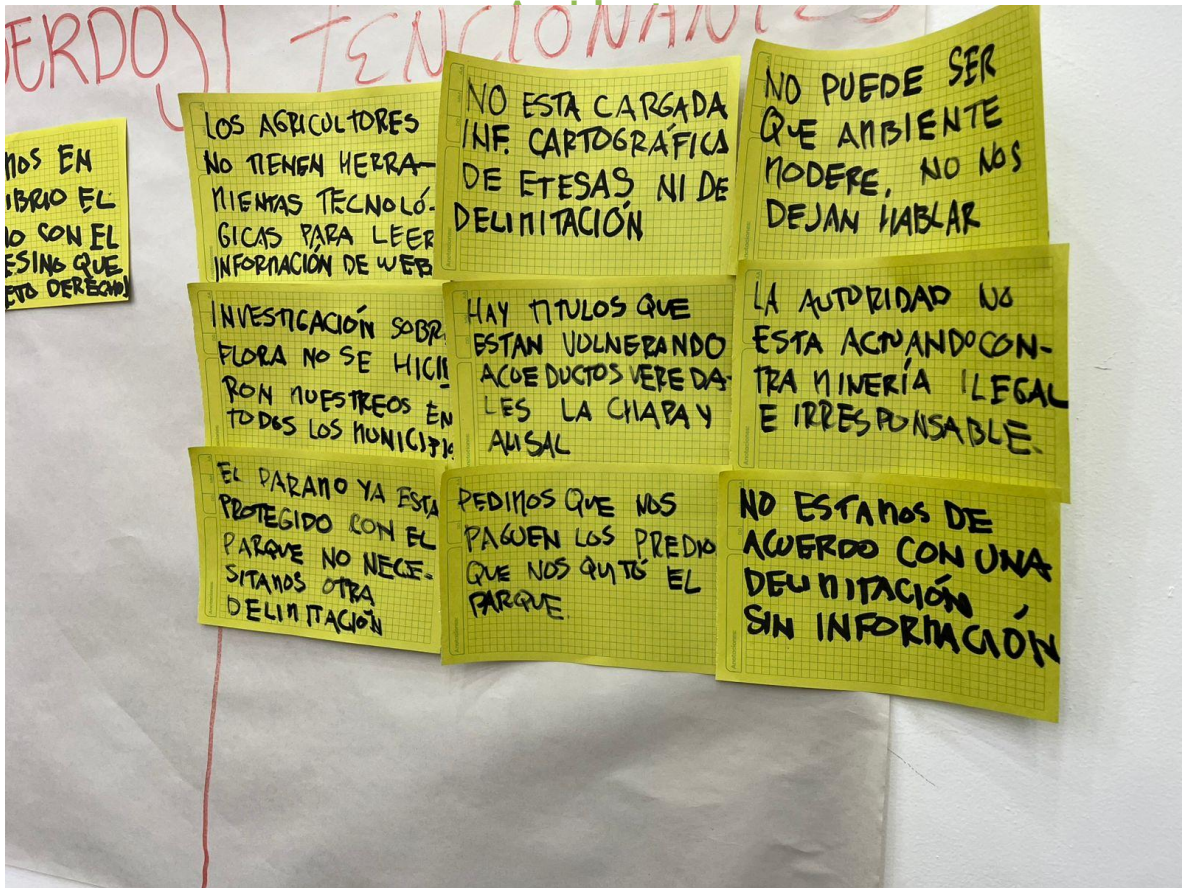 ERDOS TENCIONANTES
MOS EN
IBRIO EL
O CON EL
ESINO QUE
ETO DERECHO
LOS AGRICULTORES
NO TIENEN HERRA-
MIENTAS TECNOLÓ-
GICAS PARA LEER
INFORMACIÓN DE WEB
NO ESTA CARGADA
INF. CARTOGRÁFICA
DE ETESAS NI DE
DELIMITACIÓN
NO PUEDE SER
QUE AMBIENTE
MODERE, NO NOS
DEJAN HABLAR
INVESTIGACIÓN SOBR
FLORA NO SE HICIE
RON MUESTREOS EN
TODOS LOS MUNICIPIO
HAY TITULOS QUE
ESTAN VULNERANDO
ACUEDUCTOS VEREDA-
LES LA CHAPA Y
ALISAL
LA AUTORIDAD NO
ESTA ACTUANDO CON-
TRA MINERÍA ILEGAL
E IRRESPONSABLE.
EL PARAMO YA ESTA
PROTEGIDO CON EL
PARQUE NO NECE-
SITAMOS OTRA
DELIMITACIÓN
PEDIMOS QUE NOS
PAGUEN LOS PREDIO
QUE NOS QUITÓ EL
PARQUE.
NO ESTAMOS DE
ACUERDO CON UNA
DELIMITACIÓN
SIN INFORMACIÓN